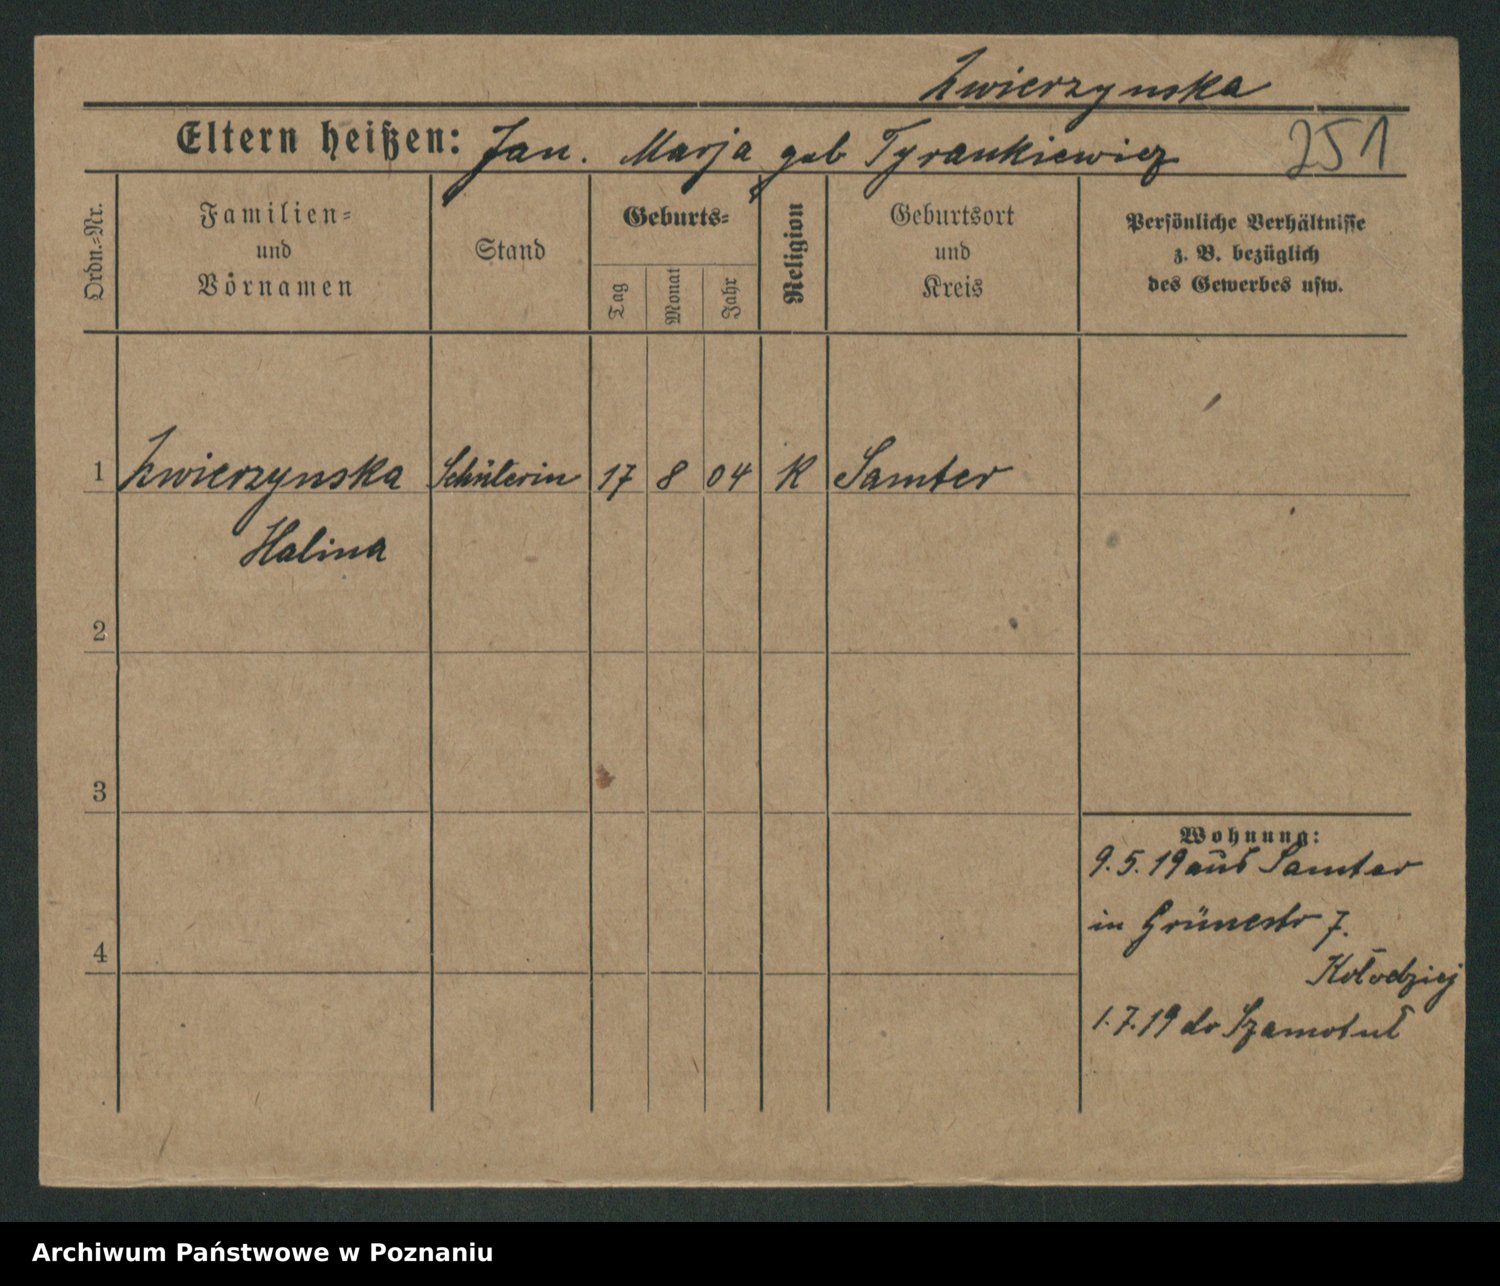 Zwierzynska
Eltern heißen: Jan. Marja geb Tyrankiewicz 251
Ordn.-Nr.
Familien-
und
Vornamen
Stand
Geburts-
Tag
Monat
Jahr
Religion
Geburtsort
und
Kreis
Persönliche Verhältnisse
z. B. bezüglich
des Gewerbes usw.
1 Zwierzynska Schülerin 17 8 04 K Samter
Halina
2
3
4
Wohnung:
9.5.19 aus Samter
in Grünestr 7.
Kołodziej
1.7.19 do Szamotuł
Archiwum Państwowe w Poznaniu